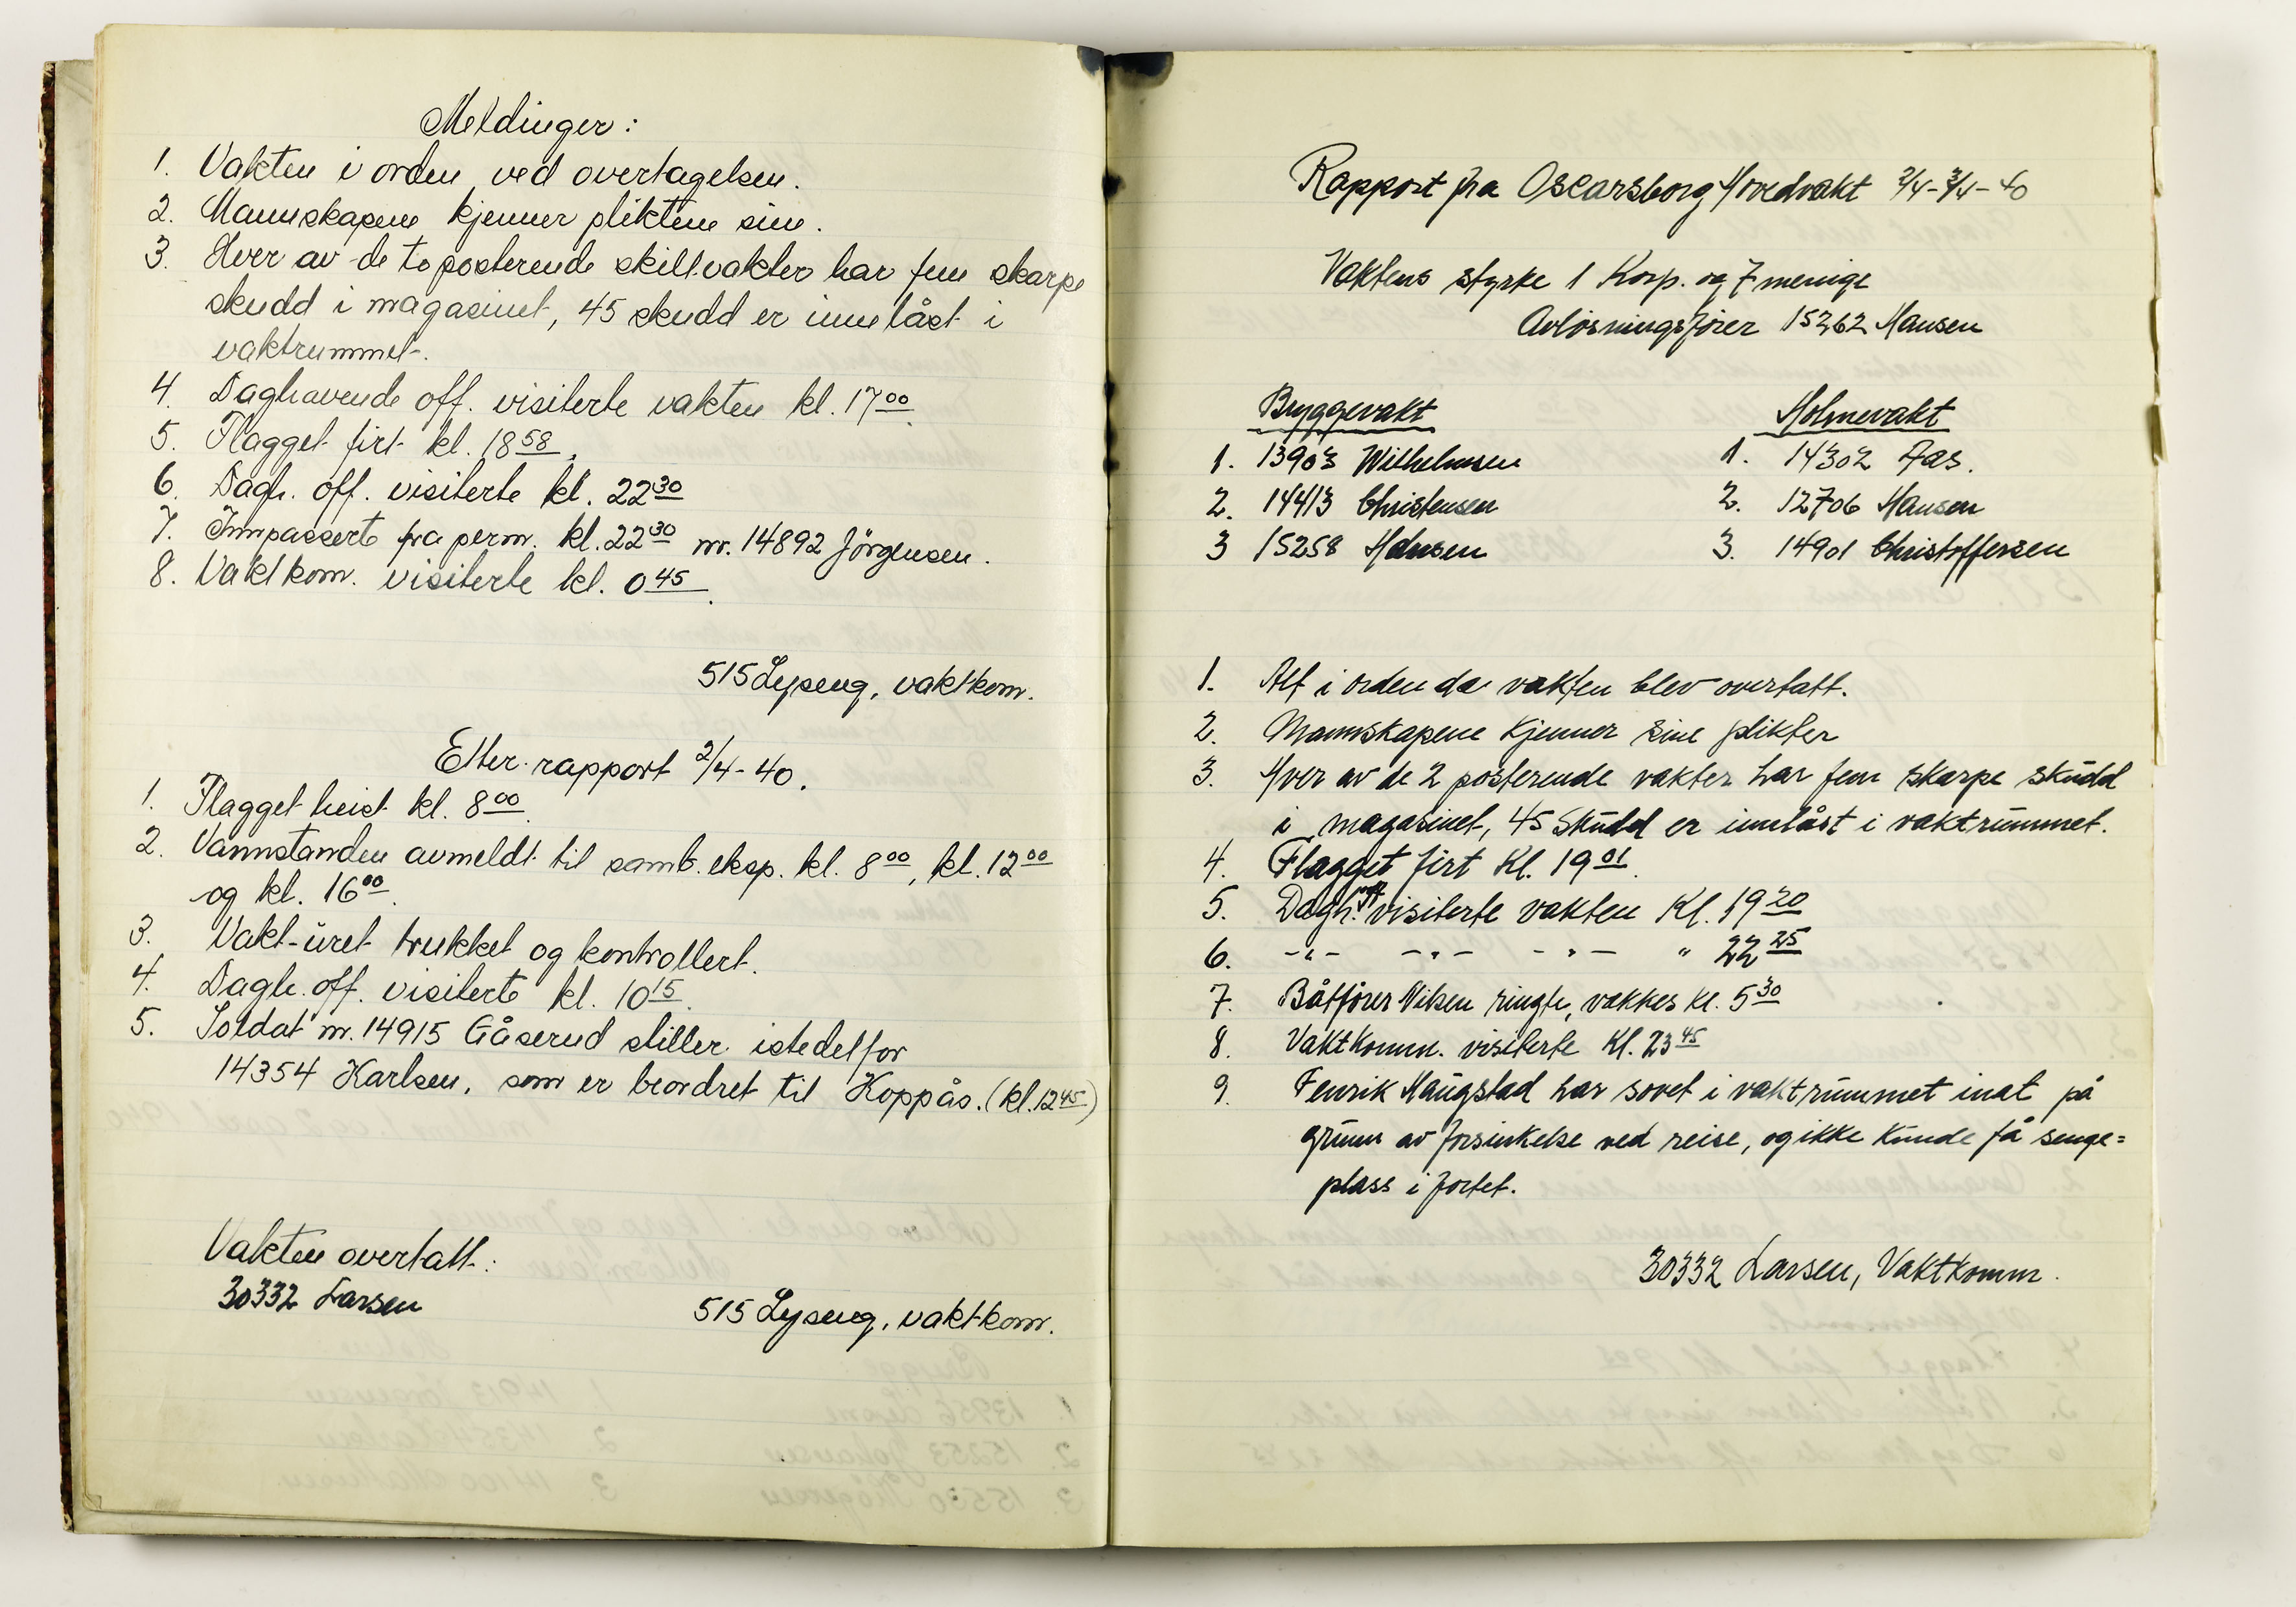 Meldinger:
1. Vakten i orden ved overtagelsen.
2. Mannskapene kjenner pliktene sine.
3. Hver av de to posterende skillvakter har fem skarpe
skudd i magasinet, 45 skudd er innelåst i
vaktrummet.
4. Daghavende off. visiterte vakten kl. 17 00.
5. Flagget firt kl. 18 58.
6. Dagh. off. visiterte kl. 22 30
7. Innpasserte fra perm. kl. 22 30 nr. 14892 Jörgensen.
8. Vaktkom. visiterte kl. 0 45.
515 Lyseng, vaktkom.
Etter-rapport 2/4-40.
1. Flagget heist kl. 8 00.
2. Vannstanden avmeldt til samb. eksp. kl. 8 00, kl. 12 00
og kl. 16 00.
3. Vakt-uret trukket og kontrollert.
4. Dagh. off. visiterte kl. 10 15.
5. Soldat nr. 14915 Gåserud stiller istedetfor
14354 Karlsen, som er beordret til Koppås. (kl. 12 45)
Vakten overtatt:
30332 Larsen
515 Lyseng, vaktkom.
Rapport fra Oscarsborg Hovedvakt 2/4-3/4-40
Vaktens styrke 1 Korp. og 7 menige
Avlösningsförer 15262 Hansen
Bryggevakt Holmevakt
1. 13903 Wilhelmsen 1. 14302 Aas.
2. 14413 Christensen 2. 12706 Hansen
3 15258 Hansen 3. 14901 Christoffersen
1. Alt i orden da vakten blev overtatt.
2. Mannskapene kjenner sine plikter
3. Hver av de 2 posterende vakter har fem skarpe skudd
i magasinet, 45 skudd er innlåst i vaktrummet.
4. Flagget firt Kl. 19 01.
5. Dagh. off. visiterte vakten Kl. 19 20
6. -"- -"- -"- " 22 25
7. Båtförer Nilsen ringte, vekkes kl. 5 30
8. Vaktkomm. visiterte Kl. 23 45
9. Fenrik Haugstad har sovet i vaktrummet inat på
grunn av forsinkelse ved reise, og ikke kunde få senge=
plass i fortet.
30332 Larsen, Vaktkomm.